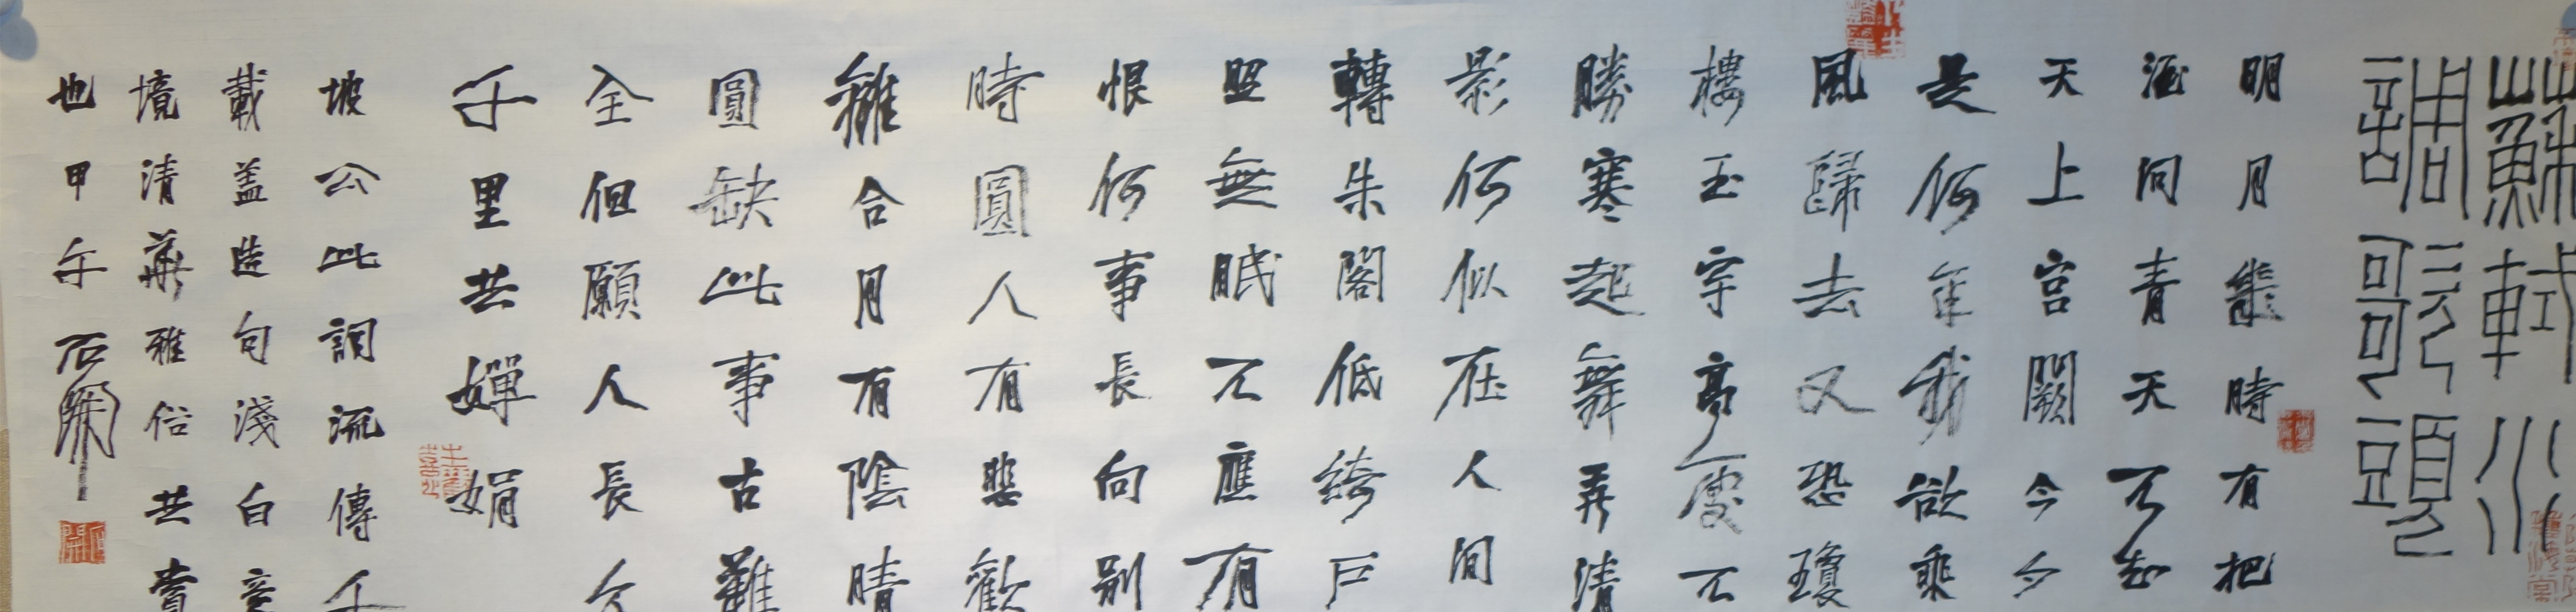 蘇軾水
調歌頭
明月幾時有把
酒问青天不知
天上宫闕今夕
是何年我欲乘
風歸去又恐瓊
樓玉宇高處不
勝寒起舞弄清
影何似在人间
轉朱閣低綺户
照無眠不應有
恨何事長向别
時圓人有悲歡
離合月有陰晴
圓缺此事古難
全但願人長久
千里共嬋娟
坡公此調流傳千
載盖造句淺白意
境清華雅俗共賞
也甲午石開